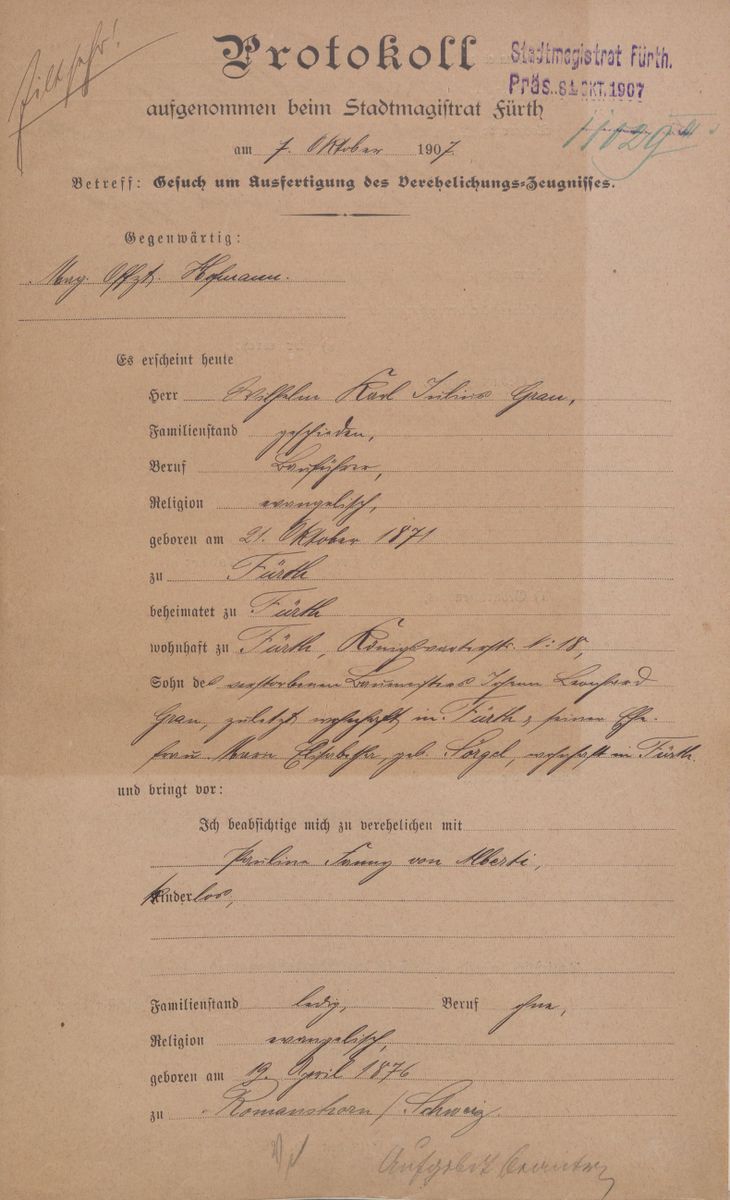 Eilt sehr!
Protokoll
Stadtmagistrat Fürth.
Präs. 8. OKT. 1907
aufgenommen beim Stadtmagistrat Fürth
am 7. Oktober 1907.
Betreff: Gesuch um Ausfertigung des Verehelichungs-Zeugnisses.
Gegenwärtig:
Mag. Offzt. Hofmann.
Es erscheint heute
Herr Wilhelm Karl Julius Grau,
Familienstand geschieden,
Beruf Bauführer,
Religion evangelisch,
geboren am 21. Oktober 1871
zu Fürth
beheimatet zu Fürth
wohnhaft zu Fürth, Königswarterstr. No: 18,
Sohn des verstorbenen Baumeisters Johann Leonhard
Grau, zuletzt wohnhaft in Fürth & seiner Ehe-
frau Maria Elisabetha, geb. Sörgel, wohnhaft in Fürth.
und bringt vor:
Ich beabsichtige mich zu verehelichen mit
Pauline Fanny von Alberti,
kinderlos,
Familienstand ledig, Beruf ohne,
Religion evangelisch,
geboren am 19. April 1876
zu Romanshorn / Schweiz.
Aufgebot